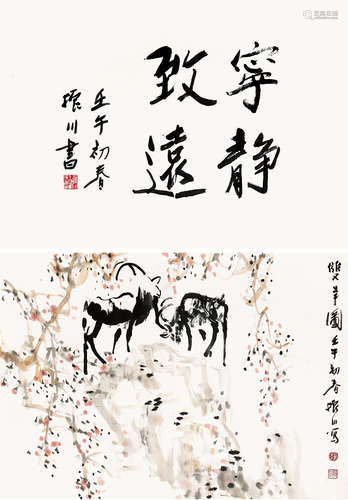 寧静
致遠
壬午初春
振川書
雙羊圖 壬午初春 振川寫